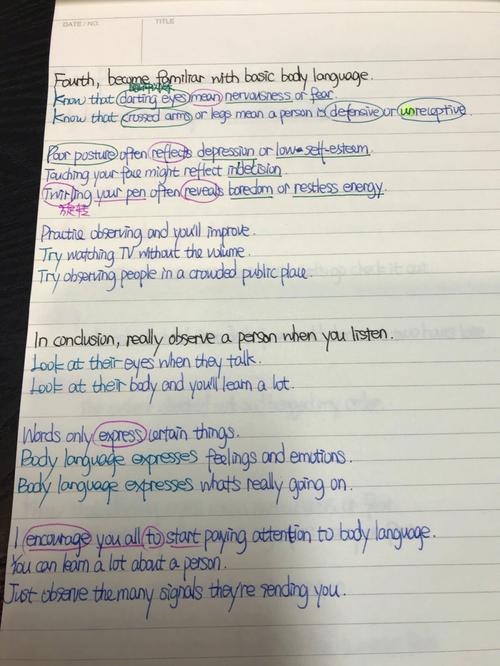 DATE / NO.
TITLE
Fourth, become familiar with basic body language.
Know that darting eyes mean nervousness or fear.
Know that crossed arms or legs mean a person is defensive or unreceptive.
Poor posture often reflects depression or low-self-esteem.
Touching your face might reflect indecision.
Twirling your pen often reveals boredom or restless energy.
旋转
Practice observing and you'll improve.
Try watching TV without the volume.
Try observing people in a crowded public place.
In conclusion, really observe a person when you listen.
Look at their eyes when they talk.
Look at their body and you'll learn a lot.
Words only express certain things.
Body language expresses feelings and emotions.
Body language expresses what's really going on.
I encourage you all to start paying attention to body language.
You can learn a lot about a person.
Just observe the many signals they're sending you.